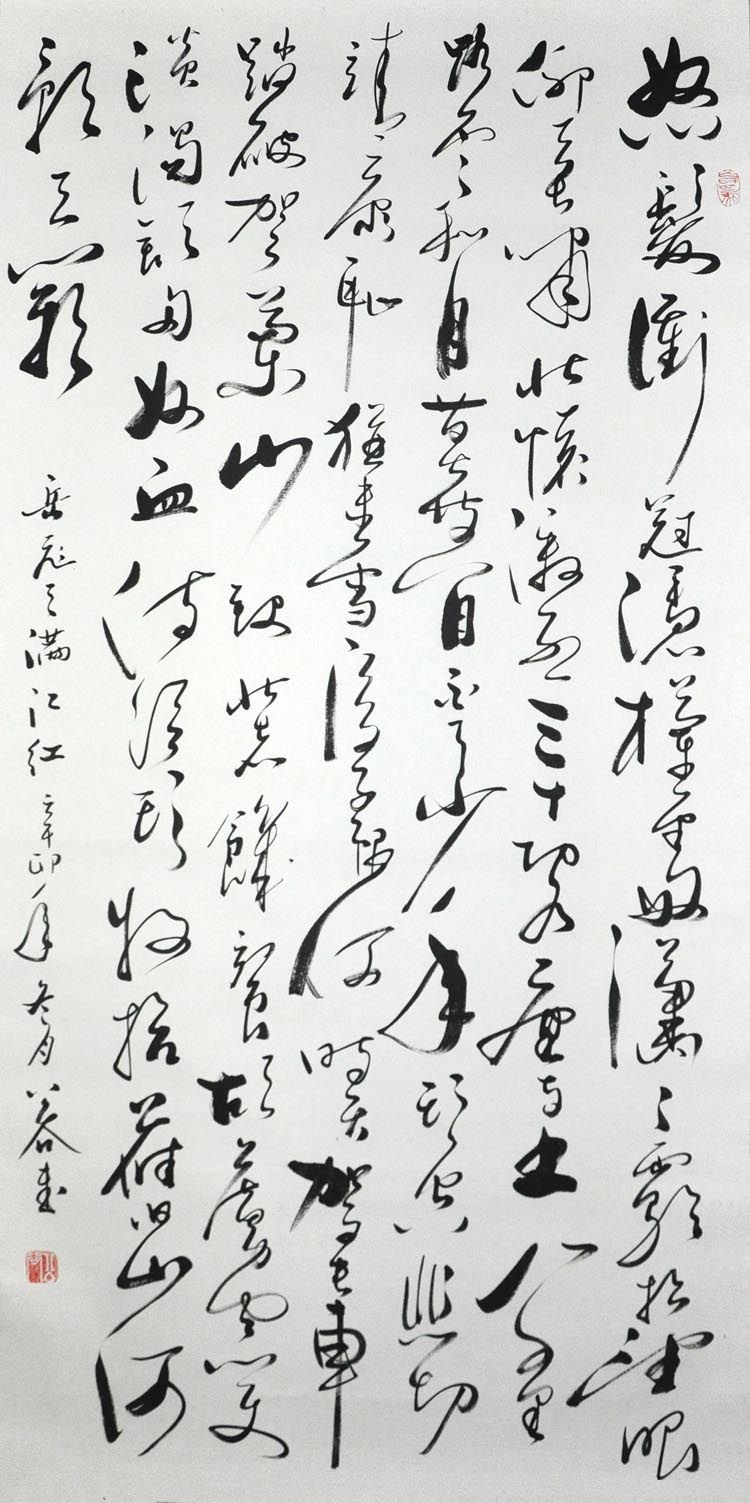 怒髮衝冠憑欄處瀟〻雨歇抬望眼
仰天長嘯壯懷激烈三十功名塵與土八千里
路雲和月莫等閒白了少年頭空悲切
靖康耻猶未雪臣子恨何時滅駕長車
踏破賀蘭山缺壯志饑餐胡虜肉笑
談渴飲匈奴血待從頭收拾舊山河
朝天闕
岳飛之滿江紅 辛卯年冬月 書